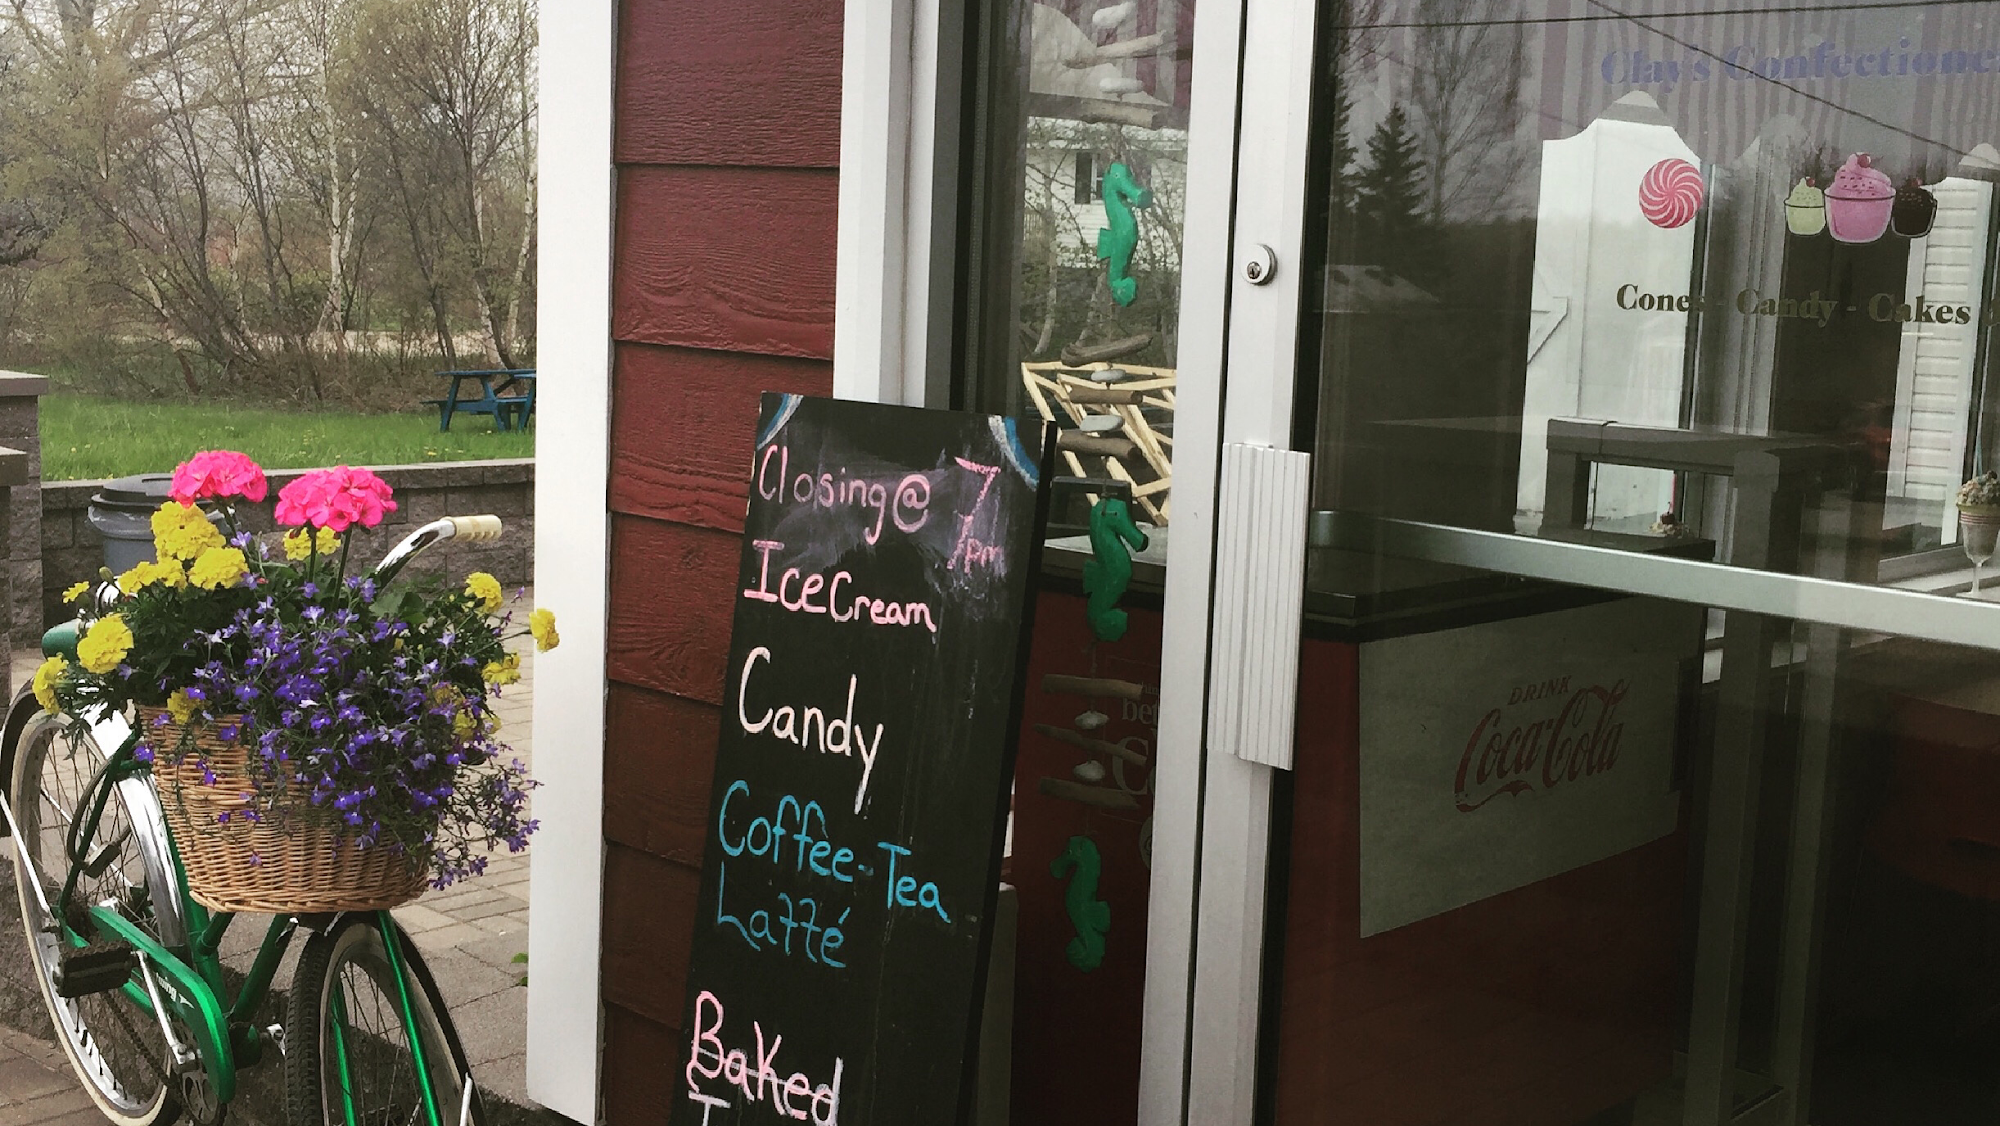 Closing @ 7
7pm
Ice Cream
Candy
Coffee-Tea
Latté
Baked
Clay's Confectione
Cones - Candy - Cakes
DRINK
Coca-Cola